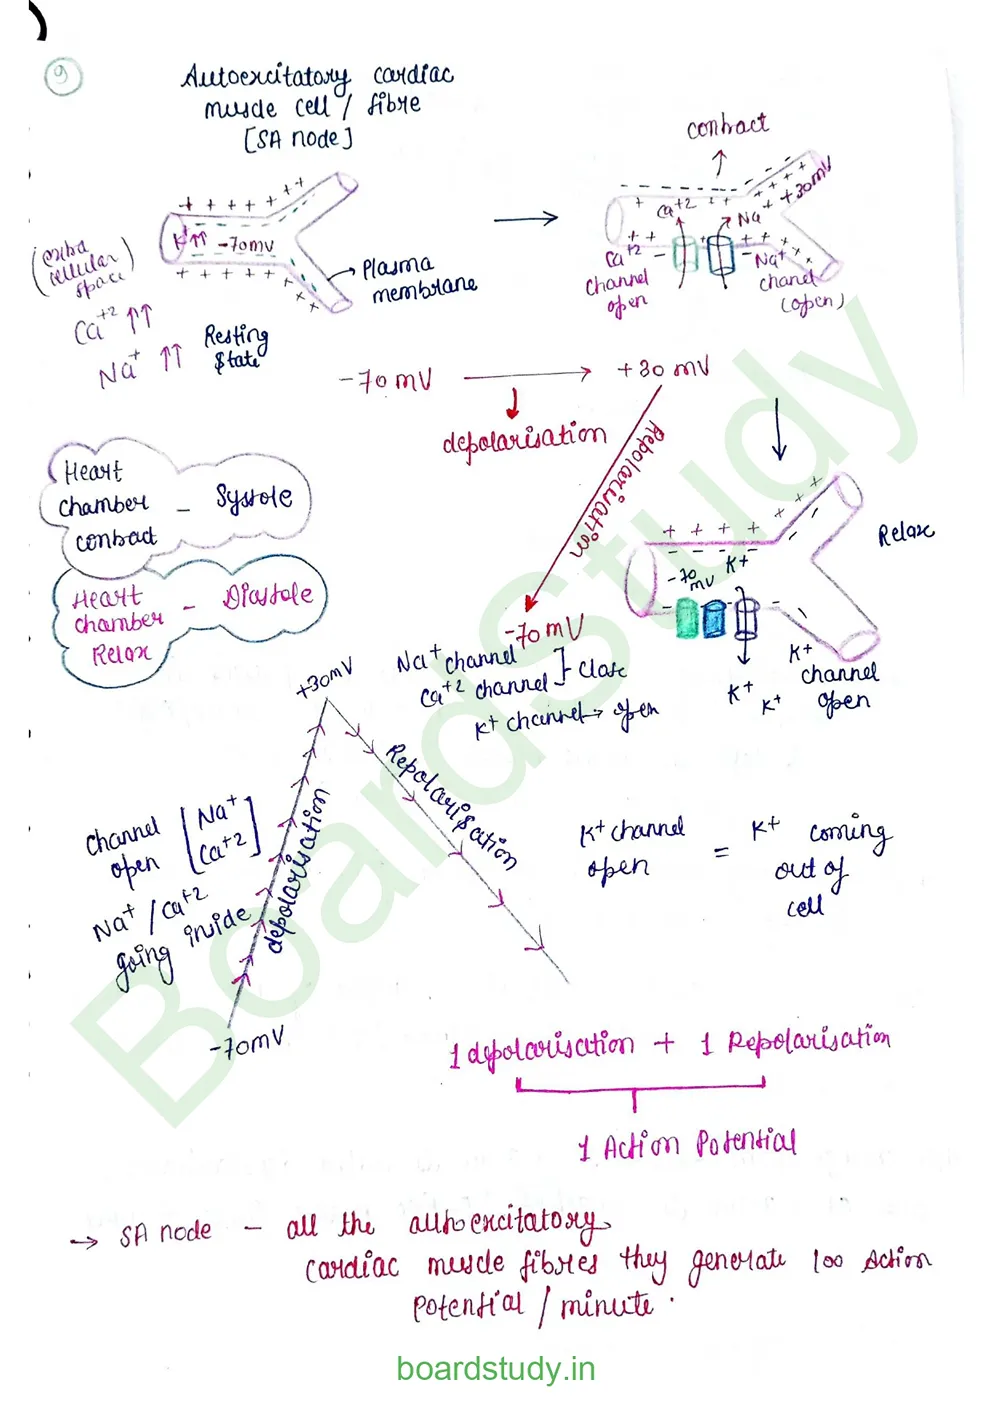 9
Autoexcitatory cardiac
muscle cell / fibre
[SA node]
+ + + + + + +
K+↑↑ -70mv
+ + + + +
(extra
cellular
space)
Ca+2 ↑↑
Na+ ↑↑
Resting
state
Plasma
membrane
contract
+30mV
Ca+2
Na+
Ca+2
channel
open
Na+
chanel
(open)
-70 mV → +30 mV
depolarisation
Repolarisation
-70mV
Heart
chamber – Systole
contract
Heart
chamber – Diastole
Relax
Relax
+ + + + + + +
-70
mv
K+
K+
K+
K+
channel
open
Na+ channel
Ca+2 channel } Close
K+ channel → open
+30mV
depolarisation
Repolarisation
channel
open [Na+
Ca+2]
Na+ / Ca+2
going inside
-70mV
K+ channel
open
=
K+ coming
out of
cell
1 depolarisation + 1 Repolarisation
1 Action Potential
→ SA node – all the authoexcitatory
cardiac muscle fibres they generate 100 Action
Potential / minute.
BoardStudy
boardstudy.in